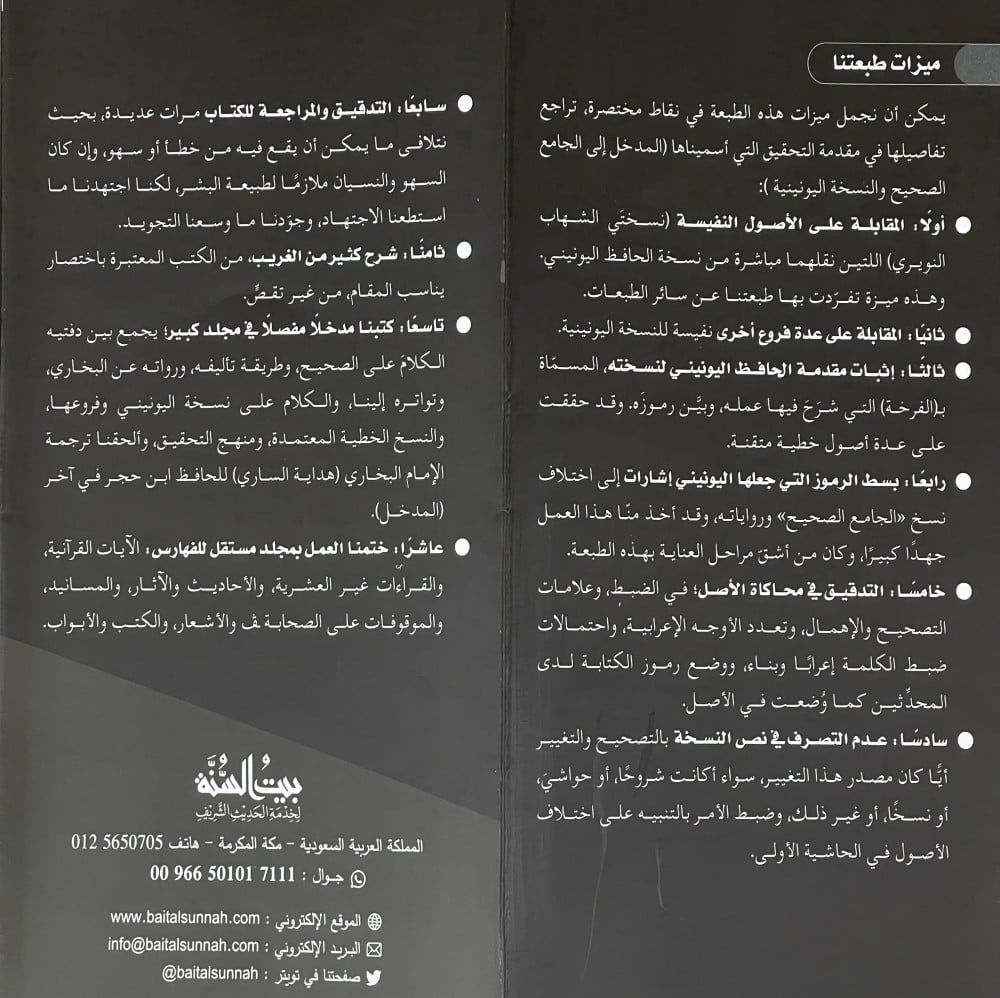 ميزات طبعتنا
يمكن أن نجمل ميزات هذه الطبعة في نقاط مختصرة، تراجع
تفاصيلها في مقدمة التحقيق التي أسميناها (المدخل إلى الجامع
الصحيح والنسخة اليونينية ):
أولًا: المقابلة على الأصول النفيسة (نسختَي الشهاب
النويري) اللتين نقلهما مباشرة من نسخة الحافظ اليونيني.
وهذه ميزة تفرّدت بها طبعتنا عن سائر الطبعات.
ثانيًا: المقابلة على عدة فروع أخرى نفيسة للنسخة اليونينية.
ثالثًا: إثبات مقدمة الحافظ اليونيني لنسخته، المسمّاة
بـ(الفرخة) التي شرَحَ فيها عمله، وبيَّن رموزَه. وقد حققت
على عدة أصول خطية متقنة.
رابعًا: بسط الرموز التي جعلها اليونيني إشارات إلى اختلاف
نسخ «الجامع الصحيح» ورواياته، وقد أخذ منّا هذا العمل
جهدًا كبيرًا، وكان من أشقّ مراحل العناية بهذه الطبعة.
خامسًا: التدقيق في محاكاة الأصل؛ في الضبط، وعلامات
التصحيح والإهمال، وتعدد الأوجه الإعرابية، واحتمالات
ضبط الكلمة إعرابًا وبناء، ووضع رموز الكتابة لدى
المحدِّثين كما وُضعت في الأصل.
سادسًا: عدم التصرف في نص النسخة بالتصحيح والتغيير
أيًّا كان مصدر هذا التغيير، سواء أكانت شروحًا، أو حواشيَ،
أو نسخًا، أو غير ذلك، وضبط الأمر بالتنبيه على اختلاف
الأصول في الحاشية الأولى.
سابعًا: التدقيق والمراجعة للكتاب مرات عديدة، بحيث
نتلافى ما يمكن أن يقع فيه من خطأ أو سهو، وإن كان
السهو والنسيان ملازمًا لطبيعة البشر، لكنا اجتهدنا ما
استطعنا الاجتهاد، وجوّدنا ما وسعنا التجويد.
ثامنًا: شرح كثير من الغريب، من الكتب المعتبرة باختصار
يناسب المقام، من غير تقصٍّ.
تاسعًا: كتبنا مدخلًا مفصلًا في مجلد كبير؛ يجمع بين دفتيه
الكلامَ على الصحيح، وطريقة تأليفه، ورواته عن البخاري،
وتواتره إلينا، والكلام على نسخة اليونيني وفروعها،
والنسخ الخطية المعتمدة، ومنهج التحقيق، وألحقنا ترجمة
الإمام البخاري (هداية الساري) للحافظ ابن حجر في آخر
(المدخل).
عاشرًا: ختمنا العمل بمجلد مستقل للفهارس: الآيات القرآنية،
والقراءات غير العشرية، والأحاديث والآثار، والمسانيد،
والموقوفات على الصحابة ڤ والأشعار، والكتب والأبواب.
بيتُ السُّنَّة
لِخدْمَةِ الحَدِيْثِ الشَّرِيْفِ
المملكة العربية السعودية - مكة المكرمة - هاتف 5650705 012
جـوال : 00 966 50101 7111
الموقع الإلكتروني : www.baitalsunnah.com
البريد الإلكتروني : info@baitalsunnah.com
صفحتنا في تويتر : @baitalsunnah